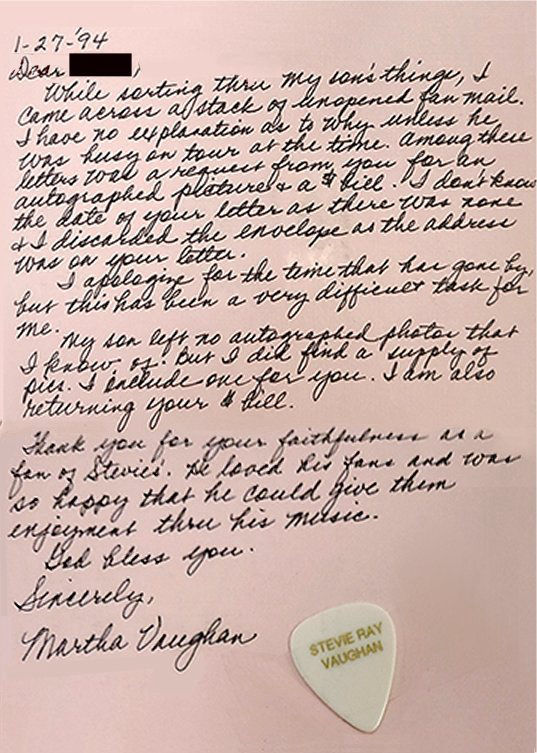 1-27-'94
Dear
While sorting thru my son's things, I
came across a stack of unopened fan mail.
I have no explanation as to why unless he
was busy on tour at the time. Among these
letters was a request from you for an
autographed picture & a $ bill. I don't know
the date of your letter as there was none
& I discarded the envelope as the address
was on your letter.
I apologize for the time that has gone by,
but this has been a very difficult task for
me.
My son left no autographed photos that
I know of. But I did find a supply of
pics. I include one for you. I am also
returning your $ bill.
Thank you for your faithfulness as a
fan of Stevie's. He loved his fans and was
so happy that he could give them
enjoyment thru his music.
God bless you.
Sincerely,
Martha Vaughan
STEVIE RAY
VAUGHAN